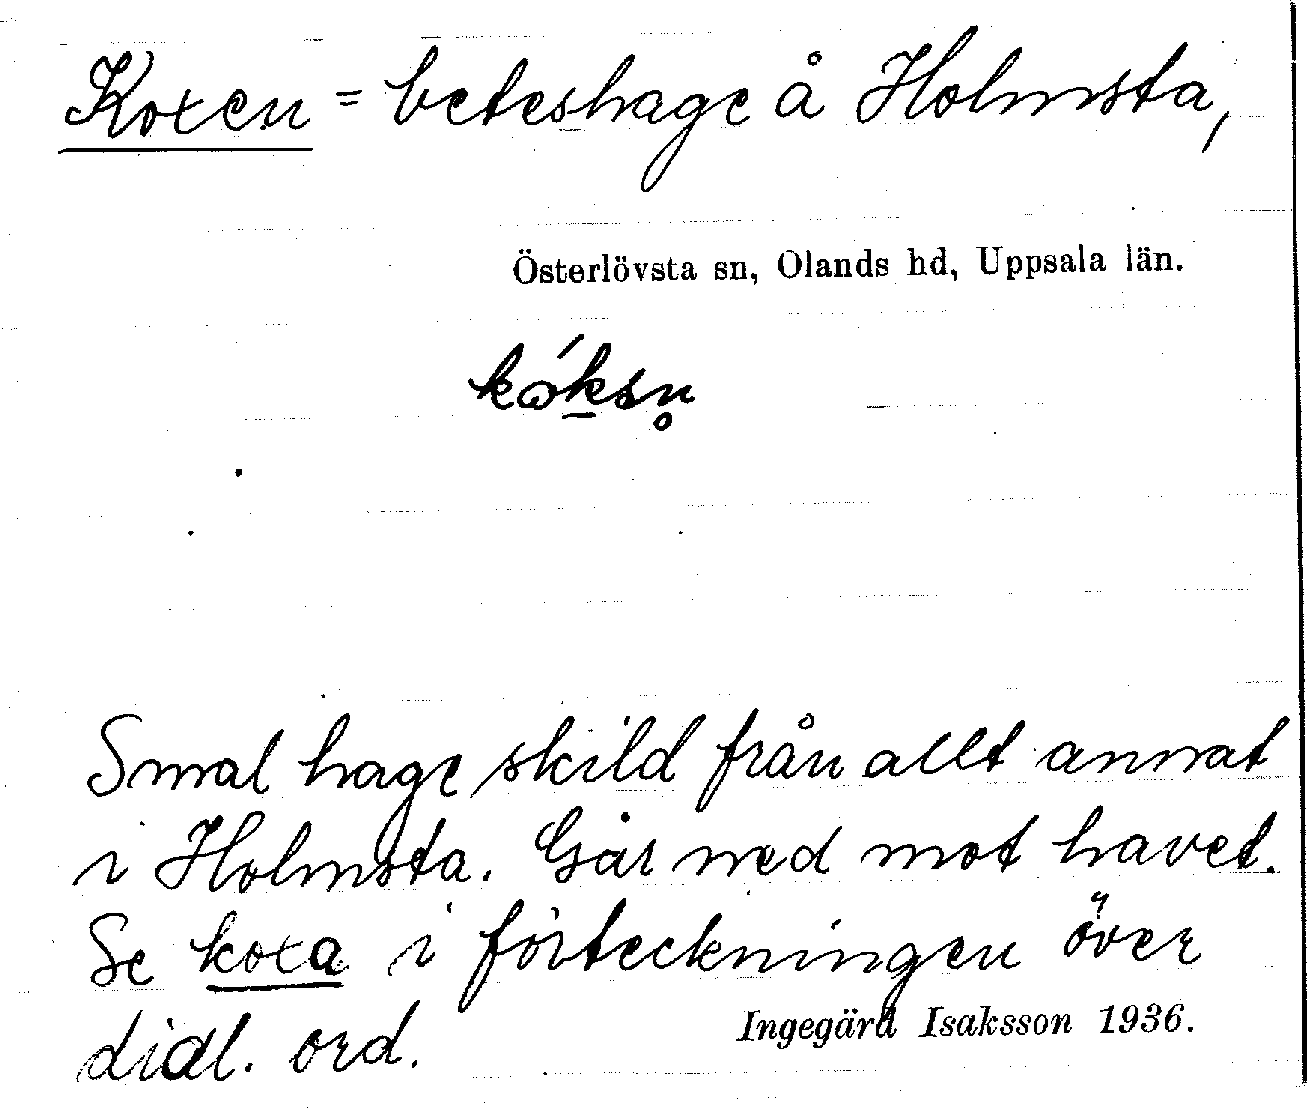 Koxen = beteshage å Holmsta,
Österlövsta sn, Olands hd, Uppsala län.
kɷ́ksn̥
Smal hage skild från allt annat
i Holmsta. Går ned mot havet.
Se koxa i förteckningen över
dial. ord.
Ingegärd Isaksson 1936.